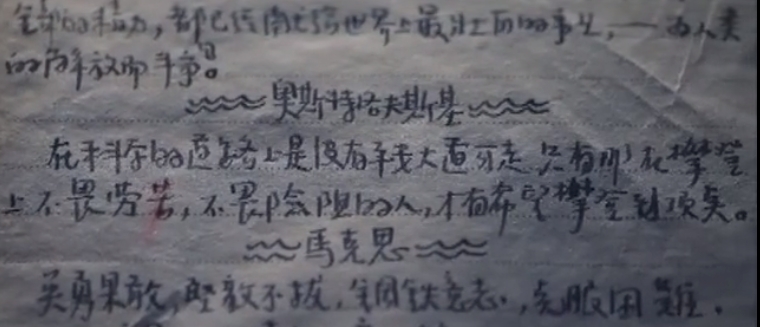 全部的精力,都已经献给世界上最壮丽的事业,——为人类
的解放而斗争。
奥斯特洛夫斯基
在科学的道路上是没有平坦大道可走 只有那 在攀登
上不畏劳苦,不畏险阻的人,才有希望攀登到顶点。
马克思
英勇果敢,坚毅不拔,钢铁意志,克服困难,